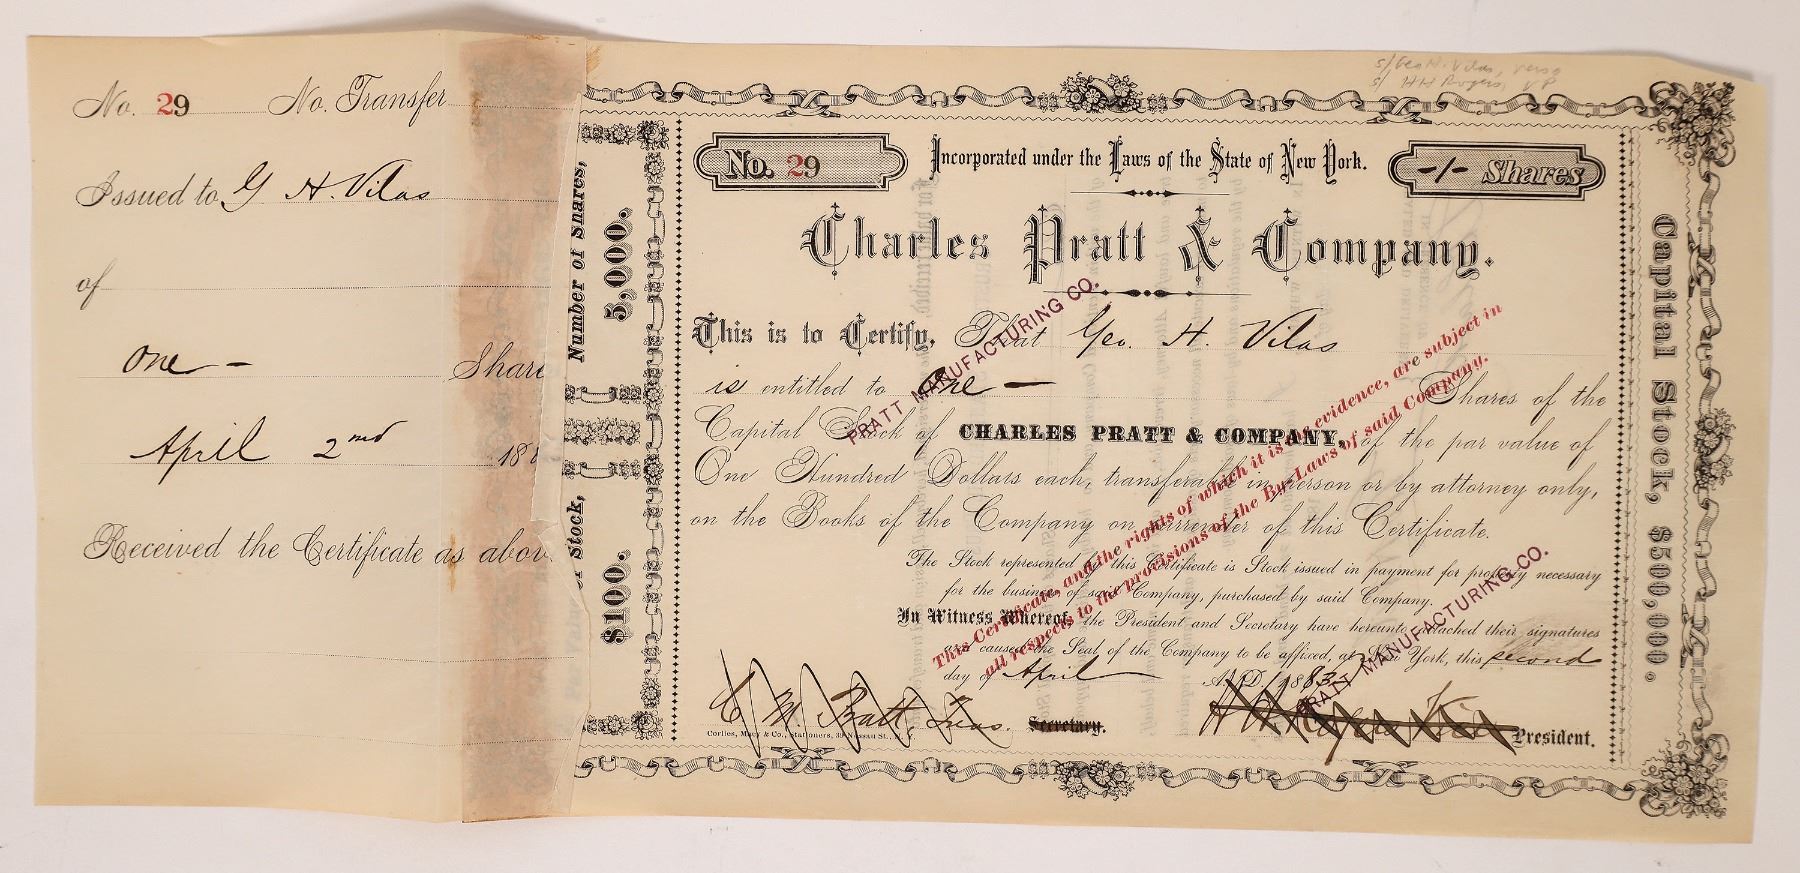 No. 29 No. Transfer
Issued to G H. Vilas
of
One - Share
April 2nd 18
Received the Certificate as above
Number of Shares, 5,000.
Stock, $100.
s/ Geo H. Vilas, verso
s/ HH Rogers, VP
No. 29
Incorporated under the Laws of the State of New York.
-1- Shares
Charles Pratt & Company.
This is to Certify, That Geo. H. Vilas
is entitled to One - Shares of the
Capital Stock of CHARLES PRATT & COMPANY, of the par value of
One Hundred Dollars each, transferable in person or by attorney only,
on the Books of the Company on surrender of this Certificate.
The Stock represented by this Certificate is Stock issued in payment for property necessary
for the business of said Company, purchased by said Company.
In Witness Whereof, the President and Secretary have hereunto attached their signatures
and caused the Seal of the Company to be affixed, at New York, this second
day of April A.D. 1883
C. M. Pratt, Treas. Secretary.
President.
Corlies, Macy & Co., Stationers, 39 Nassau St., N. Y.
Capital Stock, $500,000.
This Certificate, and the rights of which it is the evidence, are subject in
all respects to the provisions of the By-Laws of said Company.
PRATT MANUFACTURING CO.
PRATT MANUFACTURING CO.